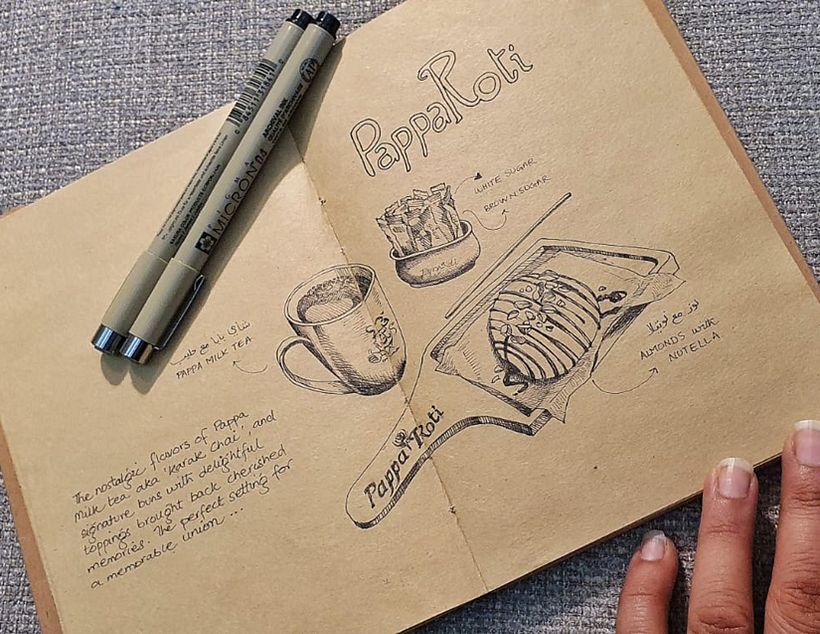 PappaRoti
WHITE SUGAR
BROWN SUGAR
شاي بابا مع حليب
PAPPA MILK TEA
لوز مع نوتيلا
ALMONDS with
NUTELLA
Pappa Roti
The nostalgic flavors of Pappa
milk tea aka 'Karak Chai', and
signature buns with delightful
toppings brought back cherished
memories. The perfect setting for
a memorable union ...
MICRON